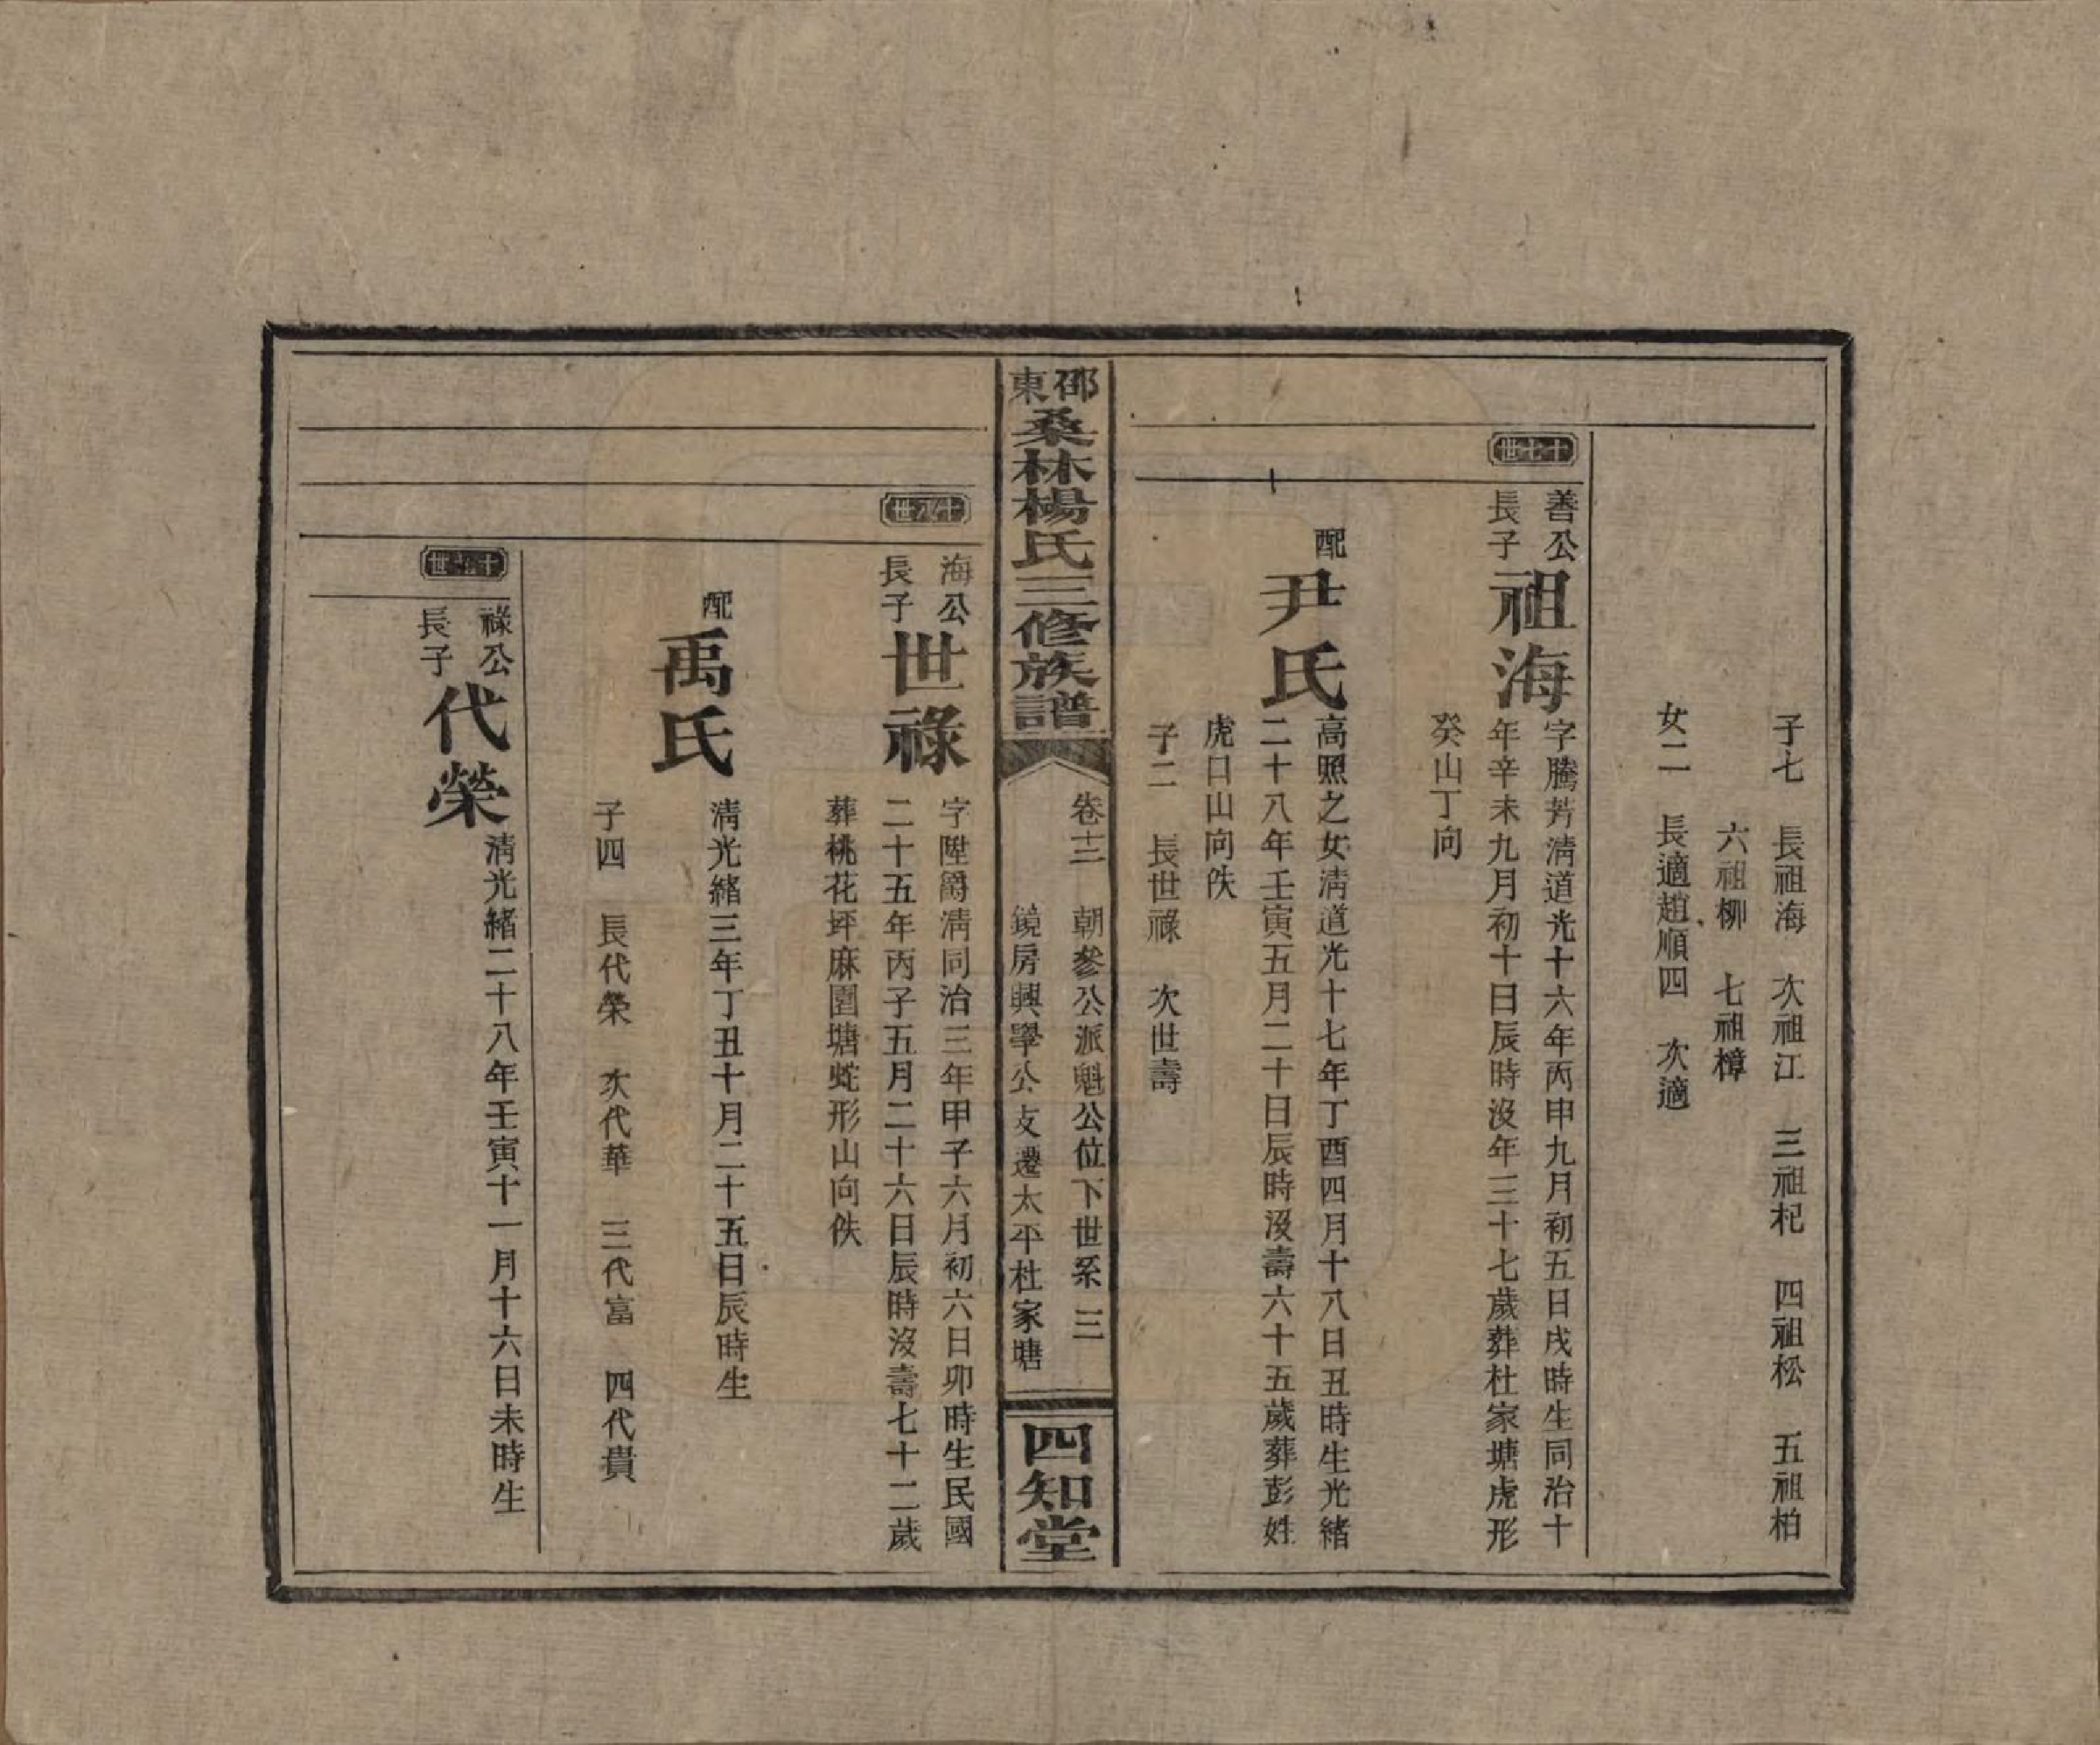 子七　長祖海　次祖江　三祖杞　四祖松　五祖柏
六祖柳　七祖樟
女二　長適趙順四　次適
十七世
善公長子
祖海
字騰芳清道光十六年丙申九月初五日戌時生同治十
年辛未九月初十日辰時沒年三十七歲葬杜家塘虎形
癸山丁向
配
尹氏
高照之女清道光十七年丁酉四月十八日丑時生光緒
二十八年壬寅五月二十日辰時沒壽六十五歲葬彭姓
虎口山向佚
子二　長世祿　次世壽
邵東桑林楊氏三修族譜
卷十三　朝參公派魁公位下世系　三
鏡房興舉公支遷太平杜家塘
四知堂
十八世
海公長子
世祿
字陞爵清同治三年甲子六月初六日卯時生民國
二十五年丙子五月二十六日辰時沒壽七十二歲
葬桃花坪麻園塘蛇形山向佚
配
禹氏
清光緒三年丁丑十月二十五日辰時生
子四　長代榮　次代華　三代富　四代貴
十九世
祿公長子
代榮
清光緒二十八年壬寅十一月十六日未時生